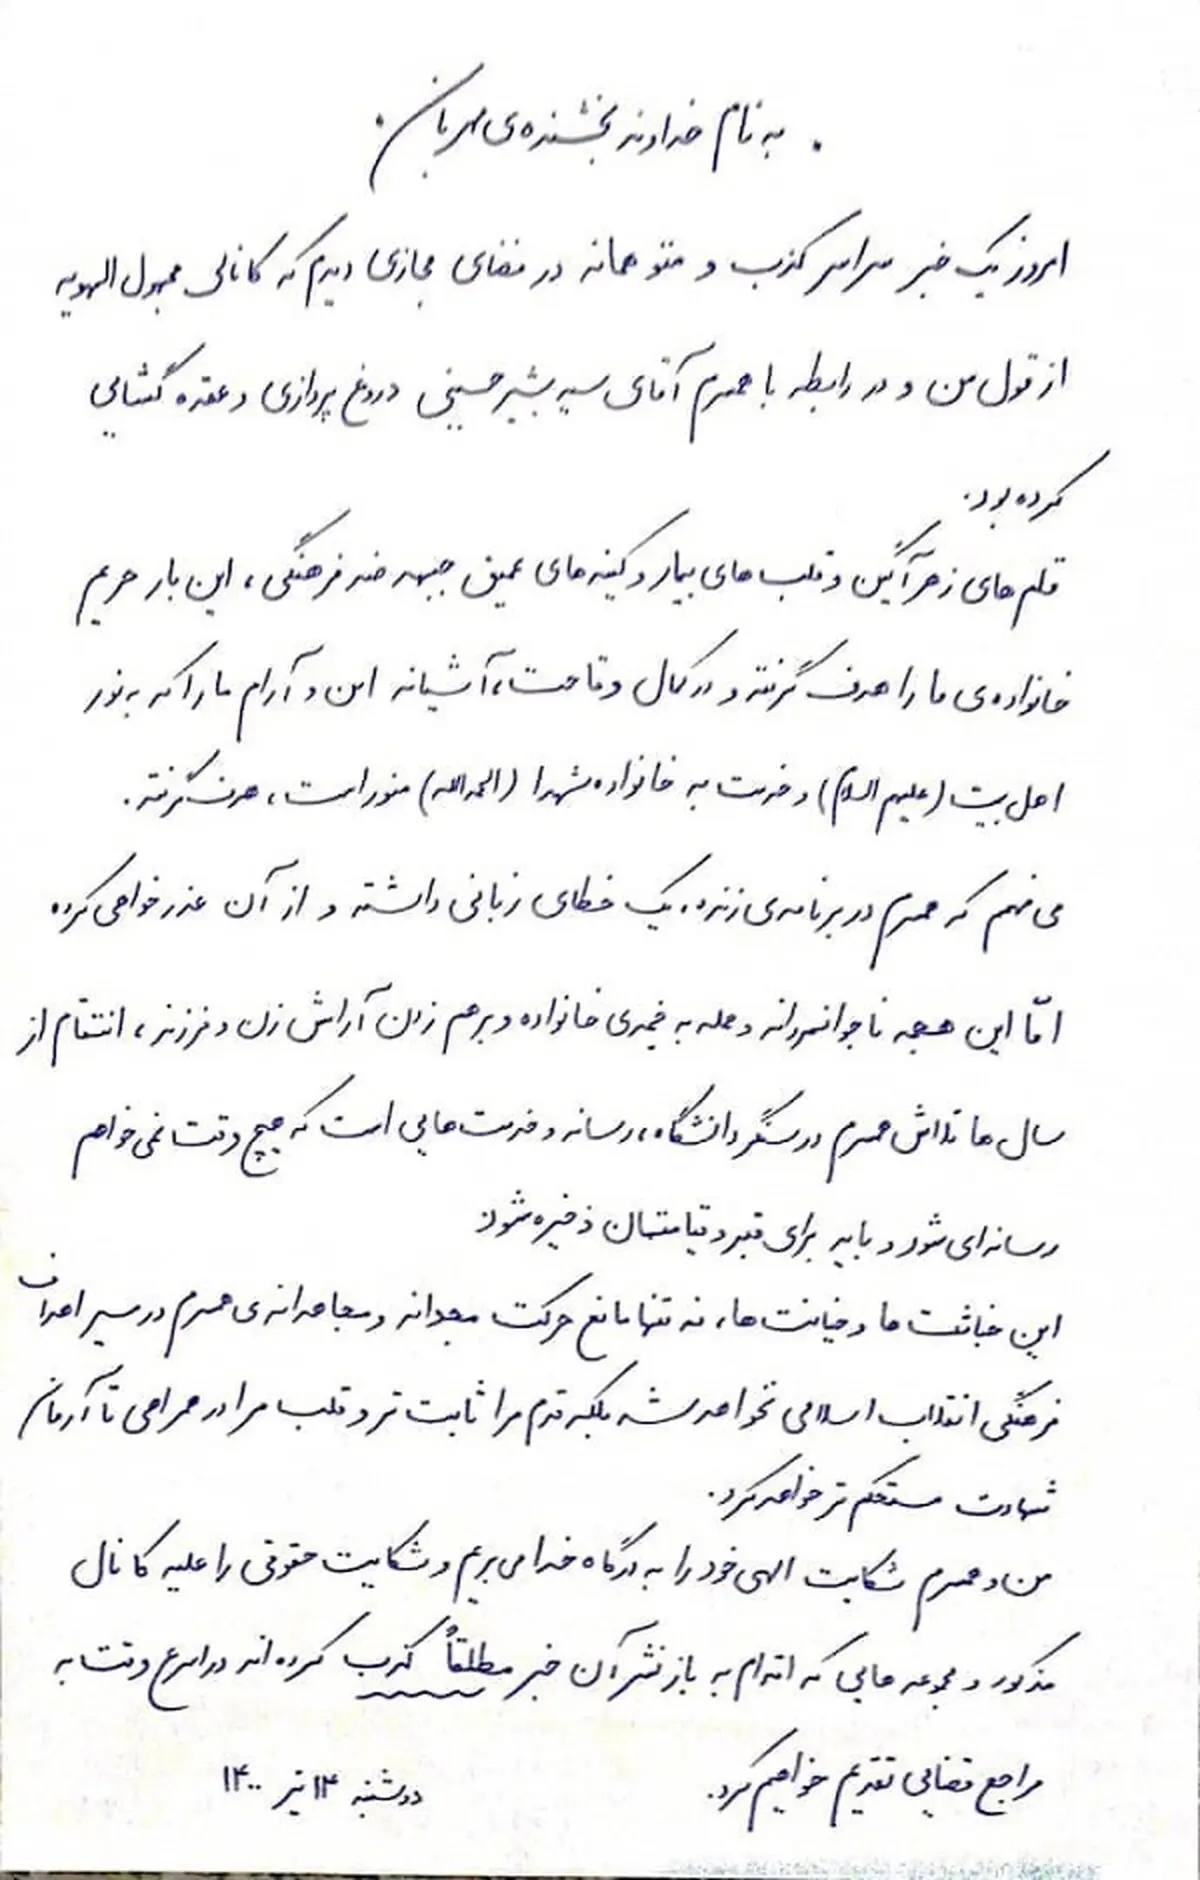 . به نام خداوند بخشنده‌ی مهربان .
امروز یک خبر سراسر کذب و متوهمانه در فضای مجازی دیدم که کانالی مجهول الهویه
از قول من و در رابطه با همسرم آقای سید بشیر حسینی دروغ پردازی و عقده گشایی
کرده بود.
قلم‌های زهرآگین و قلب‌های بیمار و کینه‌های عمیق جبهه ضد فرهنگی، این بار حریم
خانواده‌ی ما را هدف گرفته و در کمال وقاحت، آشیانه امن و آرام ما را که به نور
اهل بیت (علیهم السلام) و خدمت به خانواده شهدا (الحمدالله) منور است، هدف گرفته.
می فهمم که همسرم در برنامه‌ی زنده، یک خطای زبانی داشته و از آن عذرخواهی کرده
امّا این هجمه ناجوانمردانه و حمله به خیمه‌ی خانواده و برهم زدن آرامش زن و فرزند، انتقام از
سال ها تلاش همسرم در سنگر دانشگاه، رسانه و خدمت هایی است که هیچ وقت نمی خواهم
رسانه‌ای شود و باید برای قبر و قیامتمان ذخیره شود
این خباثت ها و خیانت ها، نه تنها مانع حرکت مجدانه و مجاهدانه‌ی همسرم در مسیر اهداف
فرهنگی انقلاب اسلامی نخواهد شد بلکه قدم مرا ثابت تر و قلب مرا در همراهی تا آرمان
شهادت مستحکم تر خواهد کرد.
من و همسرم شکایت الهی خود را به درگاه خدا می بریم و شکایت حقوقی را علیه کانال
مذکور و مجموعه هایی که اقدام به بازنشر آن خبر مطلقاً کذب کرده اند در اسرع وقت به
مراجع قضایی تقدیم خواهیم کرد.
دوشنبه ۱۴ تیر ۱۴۰۰